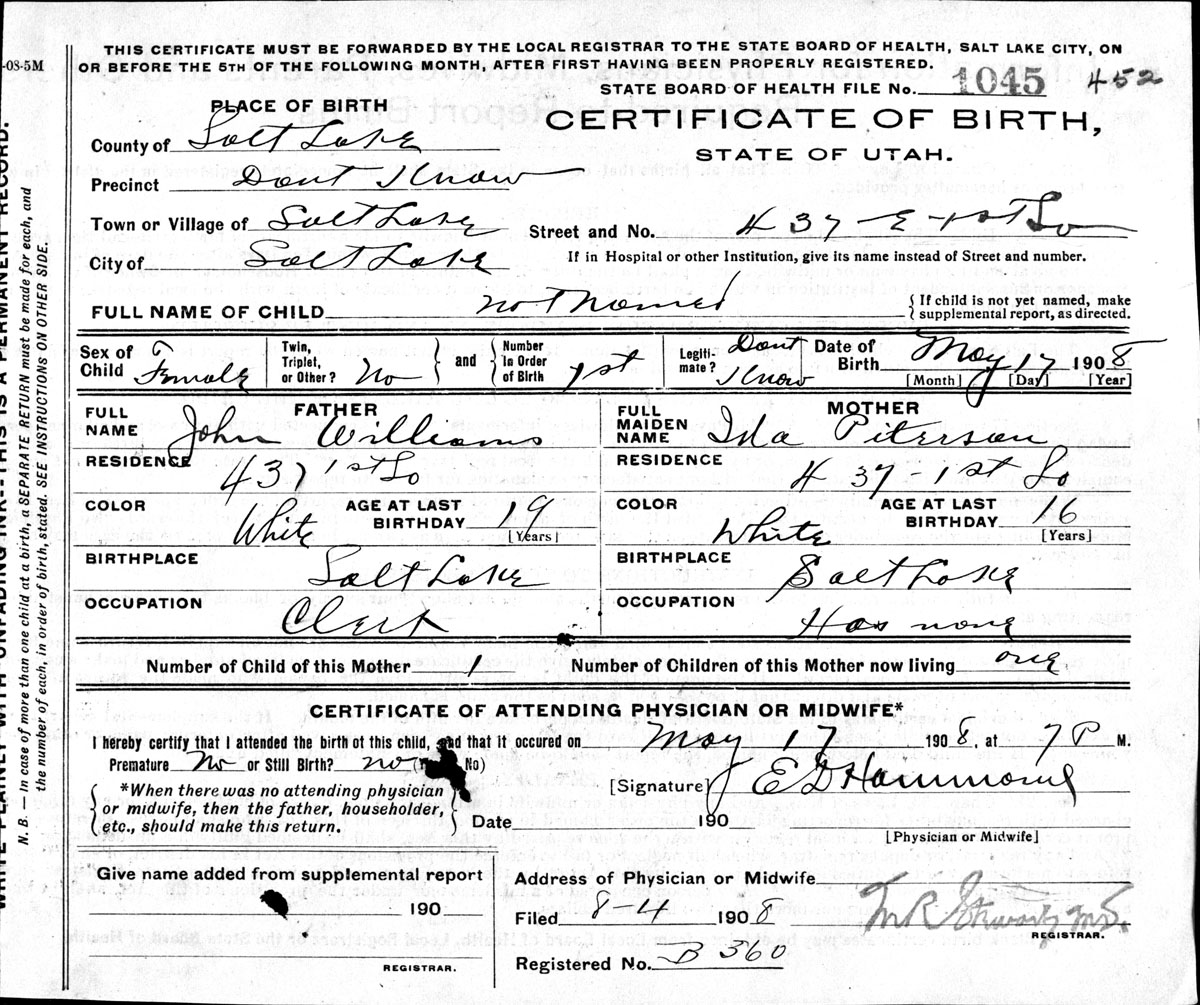 THIS CERTIFICATE MUST BE FORWARDED BY THE LOCAL REGISTRAR TO THE STATE BOARD OF HEALTH, SALT LAKE CITY, ON
OR BEFORE THE 5TH OF THE FOLLOWING MONTH, AFTER FIRST HAVING BEEN PROPERLY REGISTERED.
-08-5M
STATE BOARD OF HEALTH FILE No. 1045 452
CERTIFICATE OF BIRTH,
STATE OF UTAH.
PLACE OF BIRTH
County of Salt Lake
Precinct Dont Know
Town or Village of Salt Lake
Street and No. 437 - E - 1st So
City of Salt Lake
If in Hospital or other Institution, give its name instead of Street and number.
FULL NAME OF CHILD not Named
If child is not yet named, make
supplemental report, as directed.
Sex of
Child Female
Twin,
Triplet,
or Other? No
and
Number
in Order
of Birth 1st
Legiti-
mate? Dont
Know
Date of
Birth May 17 1908
[Month] [Day] [Year]
FATHER
FULL
NAME John Williams
RESIDENCE 437 1st So
COLOR White
AGE AT LAST
BIRTHDAY 19
[Years]
BIRTHPLACE Salt Lake
OCCUPATION Clerk
MOTHER
FULL
MAIDEN
NAME Ida Piterson
RESIDENCE 437 - 1st So
COLOR White
AGE AT LAST
BIRTHDAY 16
[Years]
BIRTHPLACE Salt Lake
OCCUPATION Has none
Number of Child of this Mother 1
Number of Children of this Mother now living one
CERTIFICATE OF ATTENDING PHYSICIAN OR MIDWIFE*
I hereby certify that I attended the birth of this child, and that it occured on May 17 1908, at 7 P M.
Premature No or Still Birth? no No)
*When there was no attending physician
or midwife, then the father, householder,
etc., should make this return.
[Signature] E D Hammond
Date 190
[Physician or Midwife]
Give name added from supplemental report
190
REGISTRAR.
Address of Physician or Midwife
Filed 8-4 1908
M.D.
REGISTRAR.
Registered No. B 360
WRITE PLAINLY WITH UNFADING INK--THIS IS A PERMANENT RECORD.
N. B. — In case of more than one child at a birth, a SEPARATE RETURN must be made for each, and
the number of each, in order of birth, stated. SEE INSTRUCTIONS ON OTHER SIDE.